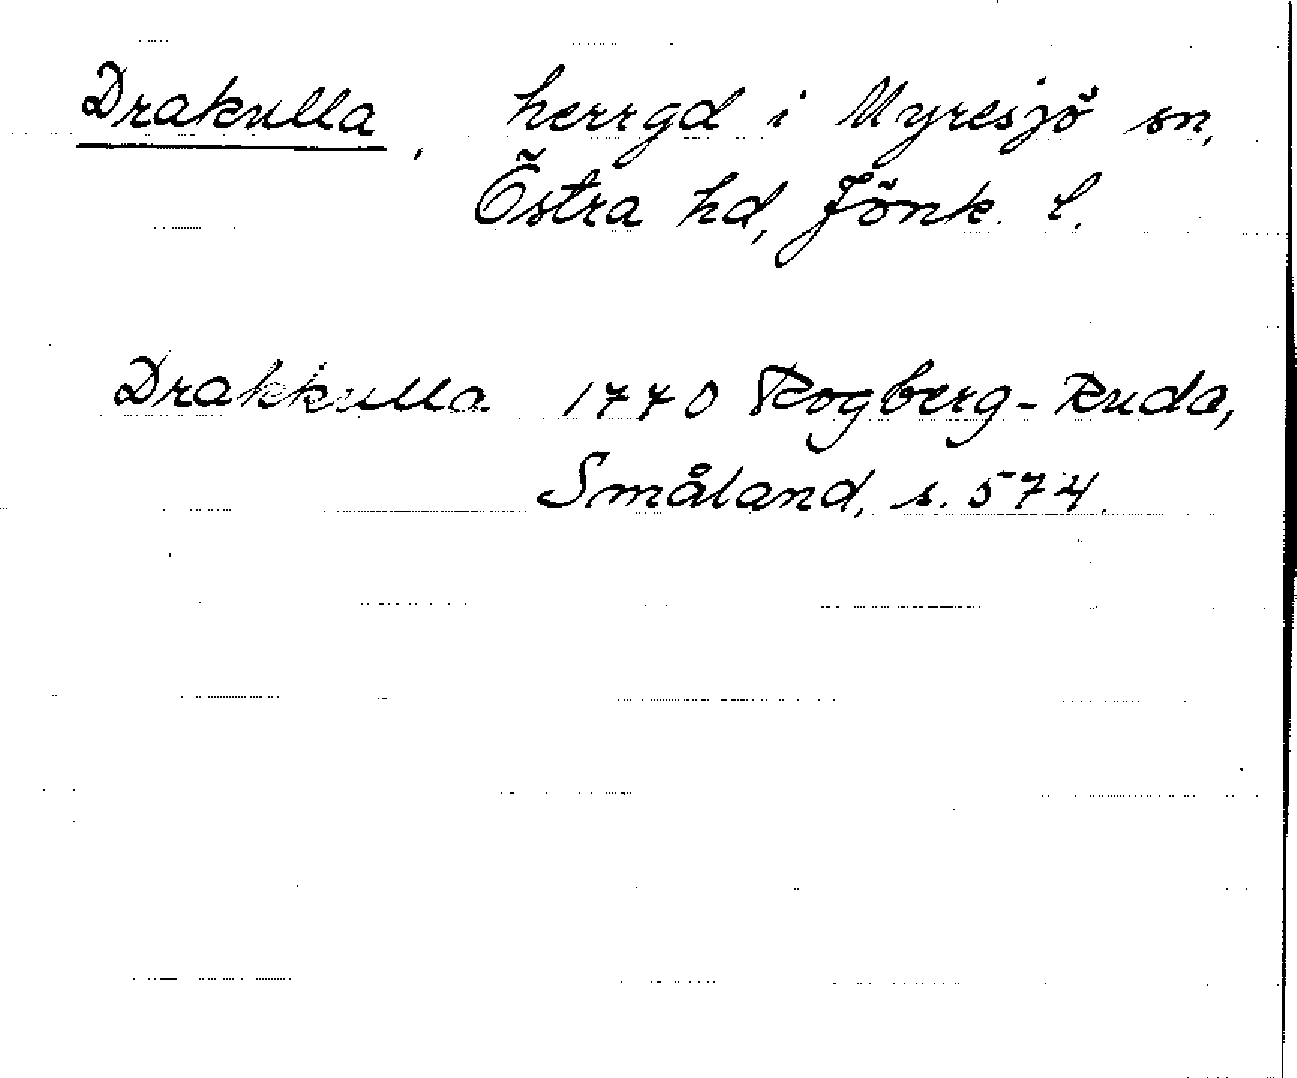 Drakulla, herrgd i Myresjö sn,
Östra hd, Jönk. l.
Drakkulla 1770 Rogberg-Ruda,
Småland, s. 574.